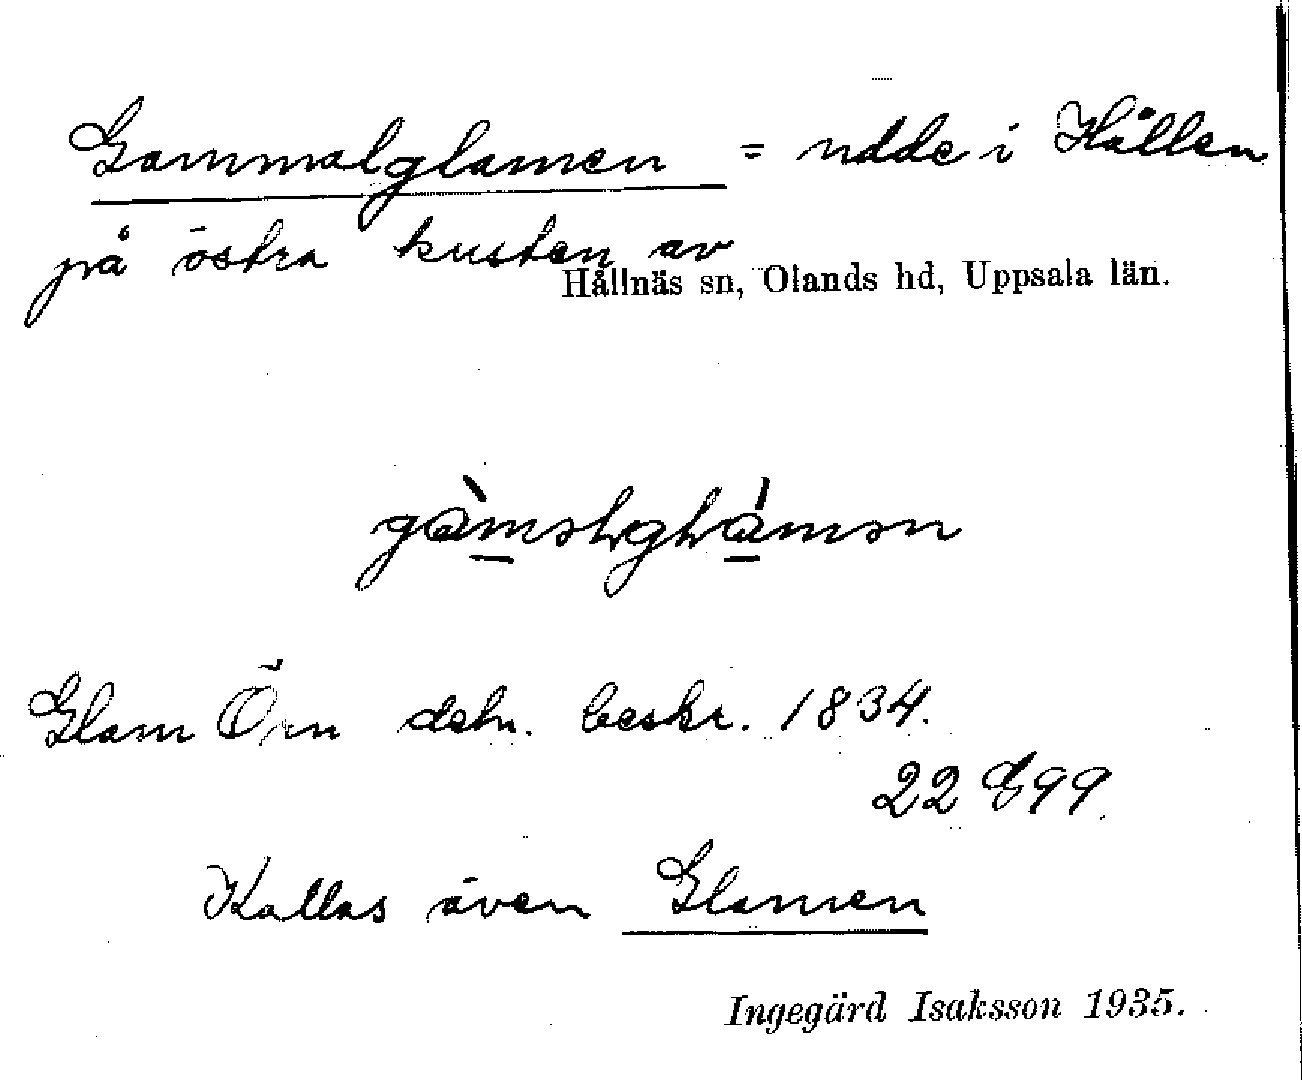 Gammalglamen = udde i Hållen
på östra kusten av
Hållnäs sn, Olands hd, Uppsala län.
Glam Örn beskr. 1834.
22 99.
Kallas även Glamen
Ingegärd Isaksson 1935.